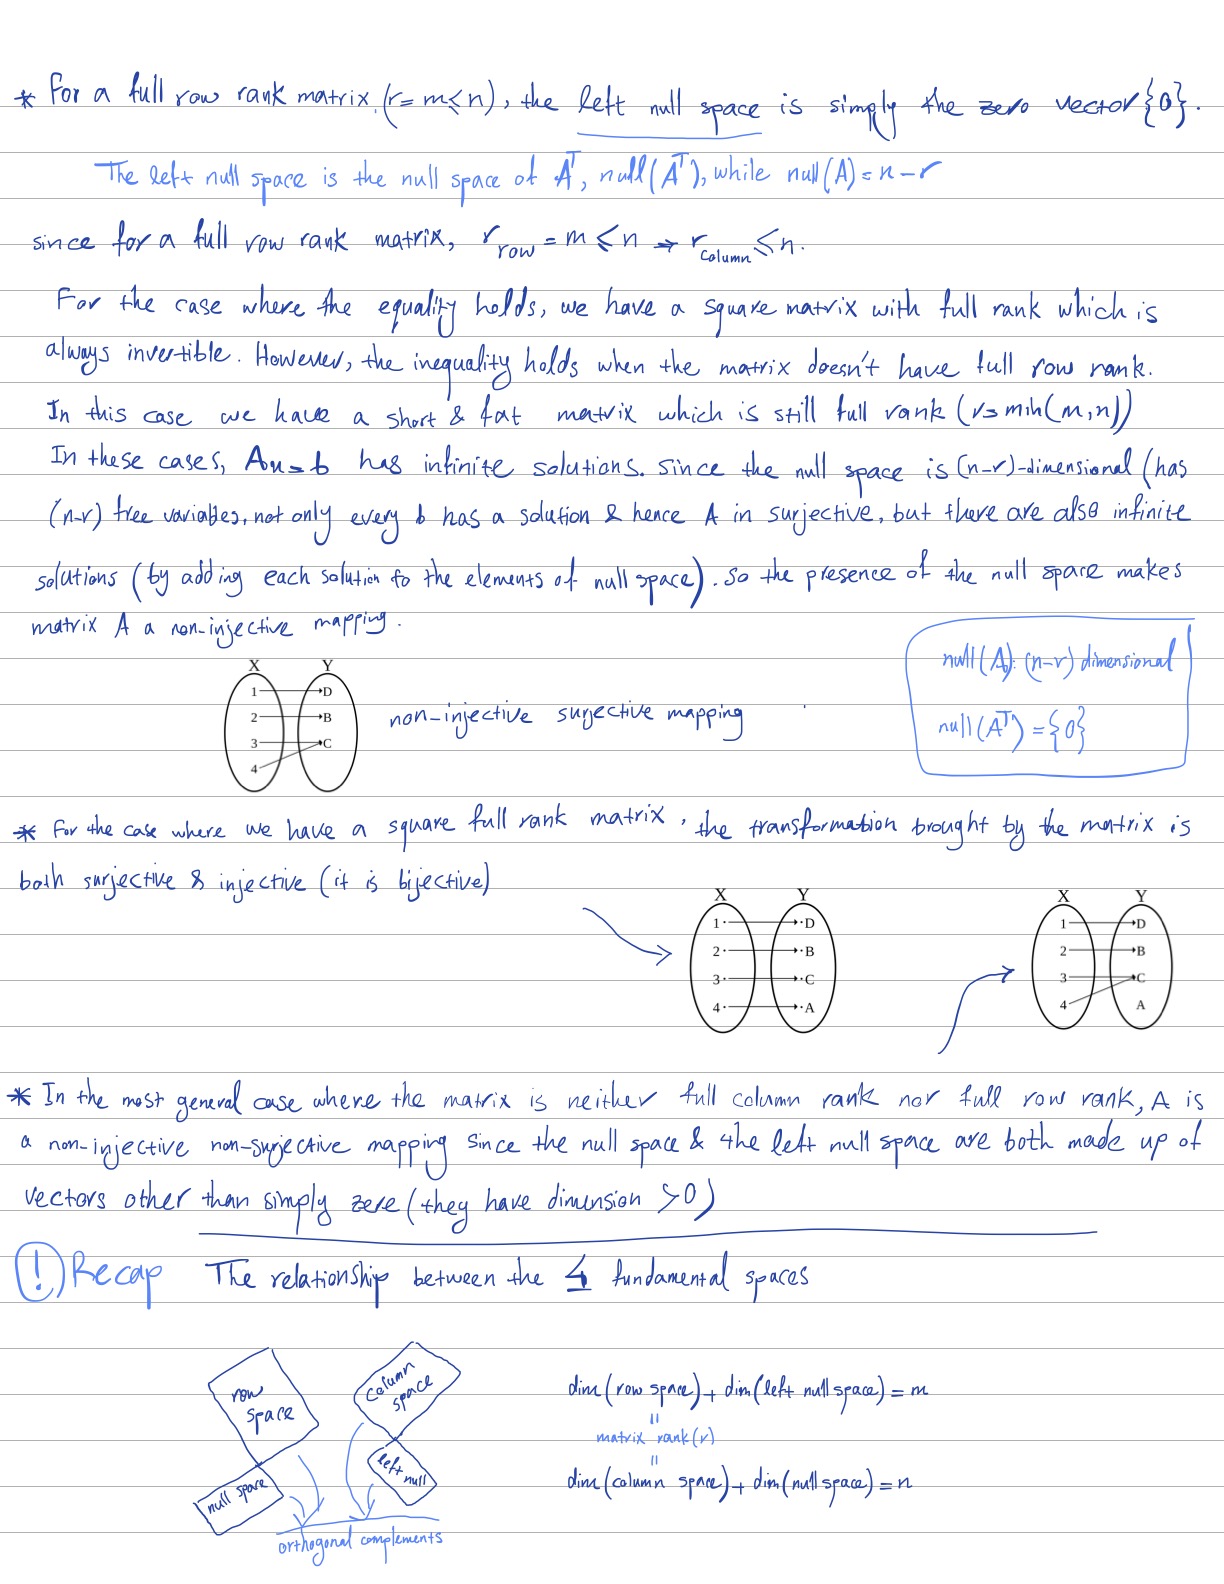 * For a full row rank matrix (r = m ≤ n), the left null space is simply the zero vector {0}.
The left null space is the null space of Aᵀ, null(Aᵀ), while null(A) = n-r
since for a full row rank matrix, r_row = m ≤ n → r_column ≤ n.
For the case where the equality holds, we have a square matrix with full rank which is
always invertible. However, the inequality holds when the matrix doesn't have full row rank.
In this case we have a short & fat matrix which is still full rank (r = min(m,n))
In these cases, Au = b has infinite solutions. Since the null space is (n-r)-dimensional (has
(n-r) free variables, not only every b has a solution & hence A in surjective, but there are also infinite
solutions (by adding each solution to the elements of null space). So the presence of the null space makes
matrix A a non-injective mapping.
null(A): (n-r) dimensional
null(Aᵀ) = {0}
X Y
1 D
2 B
3 C
4
non-injective surjective mapping
* For the case where we have a square full rank matrix, the transformation brought by the matrix is
both surjective & injective (it is bijective)
X Y
1 D
2 B
3 C
4 A
X Y
1 D
2 B
3 C
4 A
* In the most general case where the matrix is neither full column rank nor full row rank, A is
a non-injective non-surjective mapping since the null space & the left null space are both made up of
vectors other than simply zero (they have dimension >0)
! Recap The relationship between the 4 fundamental spaces
row
space
null space
column
space
left
null
orthogonal complements
dim(row space) + dim(left null space) = m
=
matrix rank (r)
=
dim(column space) + dim(null space) = n